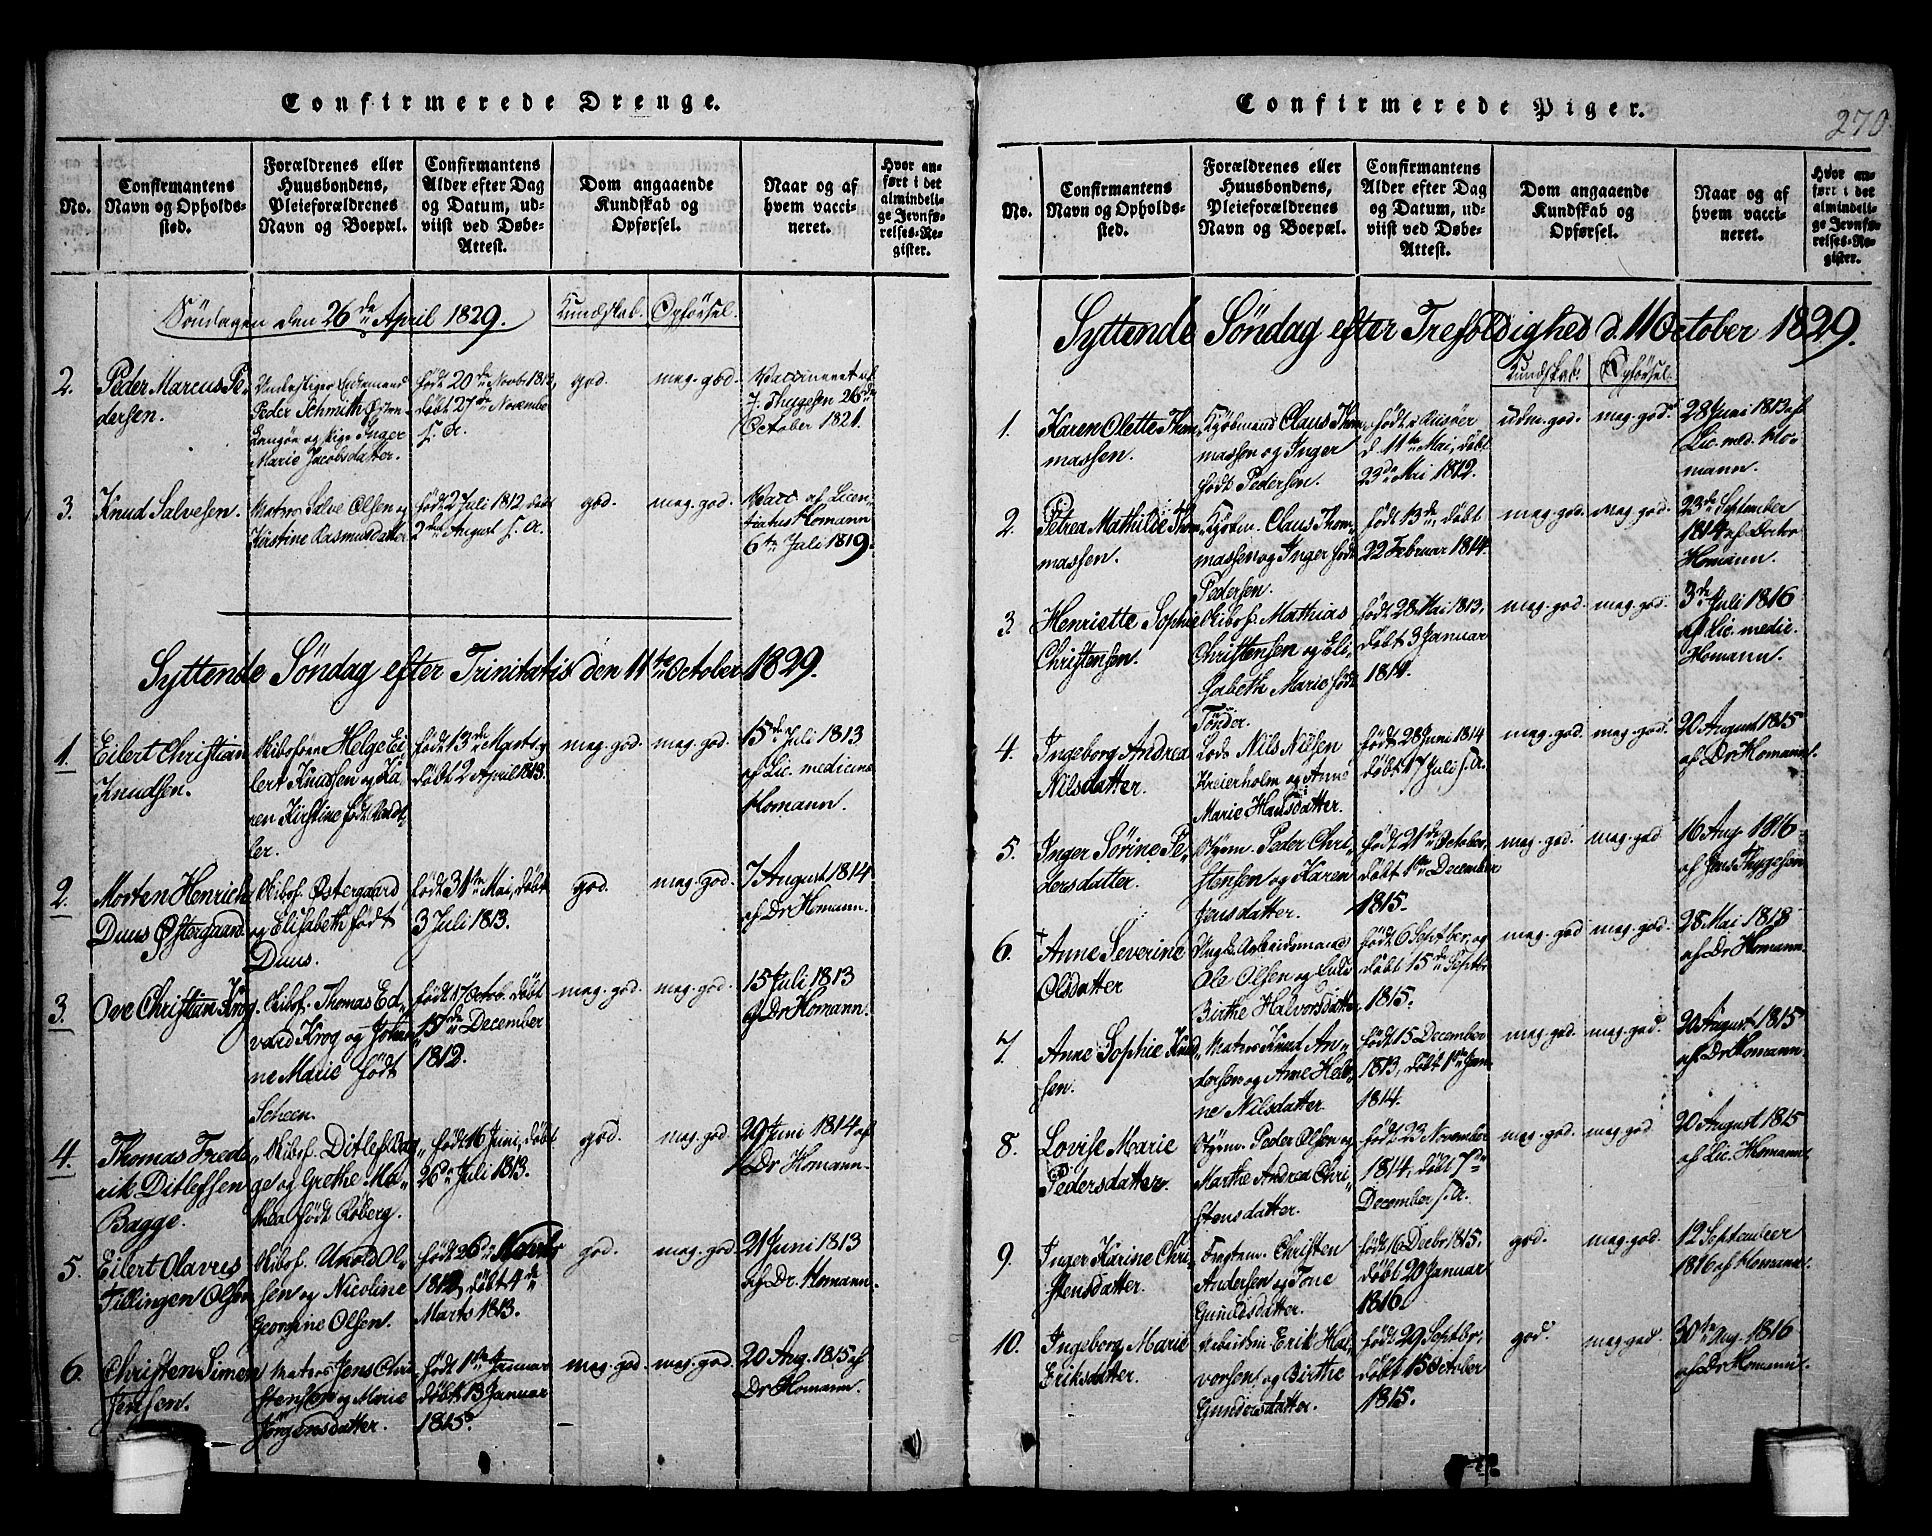 Confirmerede Drenge.
No.
Confirmantens
Navn og Opholds-
sted.
Forældrenes eller
Huusbondens,
Pleieforældrenes
Navn og Boepæl.
Confirmantens
Alder efter Dag
og Datum, ud-
viist ved Døbe-
Attest.
Dom angaaende
Kundskab og
Opførsel.
Naar og af
hvem vacci-
neret.
Hvor an-
ført i det
almindeli-
ge Jevnfø-
relses-Re-
gister.
Søndagen den 26de April 1829.
Kundskab. Opførsel.
2.
Peder Marcus Pe-
dersen.
Peder Schmith Østen
Langøe og Pige Inger
Marie Jacobsdatter.
født 20de Novbr 1813,
døbt 27de Novembr
s. A.
god.
meg. god.
Vaccineret af
J. Thygesen 26de
October 1821.
3.
Knud Salvesen.
Matros Salve Olsen og
Kirstine Rasmusdatter
født 2 Juli 1812 døbt
2den August s. A.
god.
meg. god.
Vacc. af Licen-
tiatus Homann
6te Juli 1819.
Syttende Søndag efter Trinitatis den 11te October 1829.
1.
Eilert Christian
Knudsen.
Skibsføre Helge Ei-
lert Knudsen og Ka-
ren Kirstine født
født 13de Marts,
døbt 2 April 1813.
meg. god.
meg. god.
15de Juli 1813
af Lic. medicinæ
Homann.
2.
Morten Henrich
Duus Østergaard
Skibsf. Østergaard
og Elisabeth født
Duus.
født 31te Mai, døbt
3 Juli 1813.
god.
meg. god.
7 August 1814
af Dr Homann.
3.
Ove Christian Krog
Skibsf. Thomas Ed-
vard Krog og Johan-
ne Marie født
Scheen.
født 17 Octob. døbt
15de December
1812.
meg. god.
meg. god.
15 Juli 1813
af Dr Homann.
4.
Thomas Frede-
rik Ditlefsen
Bagge.
Skibsf. Ditlef Bag-
ge og Grethe Ma-
thea født Roberg.
født 16 Juni, døbt
26de Juli 1813.
god.
meg. god.
29 Juni 1814 af
Dr Homann.
5.
Eilert Olavus
Tillingen Olsen
Skibsf. Unold Ol-
sen og Nicoline
Georgine Olsen.
født 26de Novbr
1812, døbt 4de
Marts 1813.
god.
meg. god.
21 Juni 1813
af Dr. Homann.
6.
Christen Simen
Jensen.
Matros Jens Chri-
stensen og Marie
Jörgensdatter.
født 1te Januar
døbt 13 Januar
1815.
meg. god.
meg. god.
20 Aug. 1815 af
Dr Homann.
Confirmerede Piger.
270
No.
Confirmantens
Navn og Opholds-
sted.
Forældrenes eller
Huusbondens,
Pleieforældrenes
Navn og Boepæl.
Confirmantens
Alder efter Dag
og Datum, ud-
viist ved Døbe-
Attest.
Dom angaaende
Kundskab og
Opførsel.
Naar og af
hvem vacci-
neret.
Hvor an-
ført i det
almindeli-
ge Jevnfø-
relses-Re-
gister.
Syttende Søndag efter Trefoldighed d. 11 October 1829.
Kundskab. Opførsel.
1.
Karen Olette Thom-
massen.
Kjøbmand Claus Thom-
massen og Inger
født Pedersen.
født i Riisöer
d. 11te Mai, døbt
23de Mai 1812.
udm. god.
meg. god.
28 Juni 1813 af
Lic. med. Ho-
mann.
2.
Petrea Mathilde Thom-
massen.
Kjøbm. Claus Thom-
massen og Inger født
Pedersen.
født 13de, døbt
22 Februar 1814.
meg. god.
meg god.
23de September
1814 af Doctor
Homann.
3
Henriette Sophie
Christensen.
Skibsf. Mathias
Christensen og Eli-
sabeth Marie født
Tönder.
født 28 Mai 1813,
døbt 3 Januar
1814.
meg. god.
meg. god.
3de Juli 1816
af Lic. medic.
Homann.
4.
Ingeborg Andrea
Nilsdatter.
Lods Nils Nilsen
Kreierholm og Anne
Marie Hansdatter.
født 28 Juni 1814
døbt 17 Juli s. A.
meg. god.
meg. god.
20 August 1815
af Dr Homann.
5.
Inger Sørine Pe-
dersdatter.
Styrm. Peder Chri-
stensen og Karen
Jensdatter.
født 21de October,
døbt 1te December
1815.
meg. god.
meg. god
16 Aug. 1816
af Jens Thygesen
6.
Anne Severine
Olsdatter
Arbeidsmand
Ole Olsen og
Birthe Halvorsdatter
født 6 Septbr, og
døbt 15de Septbr
1815.
meg. god
meg. god.
28 Mai 1818
af Dr Homann.
7.
Anne Sophie Knud-
sen.
Matros Knud An-
dersen og Anne Hele-
ne Nilsdatter
født 15 December
1813, døbt 1te Jan.
1814.
meg. god.
meg. god.
20 August 1815
af Dr Homann.
8.
Lovise Marie
Pedersdatter.
Styrm. Peder Olsen og
Marthe Andrea Chri-
stensdatter.
født 23 November
1814, døbt 7de
December s. A.
meg. god.
meg god
20 August 1815
af Lic. Homann.
9.
Inger Karine Chri-
stensdatter.
Christen
Andersen og Tone
Gundersdatter.
født 16 Decbr 1815,
døbt 20 Januar
1816.
god.
meg. god.
12 September
1816 af Homann.
10.
Ingeborg Marie
Eriksdatter.
Erik Hal-
vorsen og Birthe
Gundersdatter.
født 29 Septbr,
døbt 15 October
1815.
god.
meg god.
30te Aug. 1816
af Dr Homann.